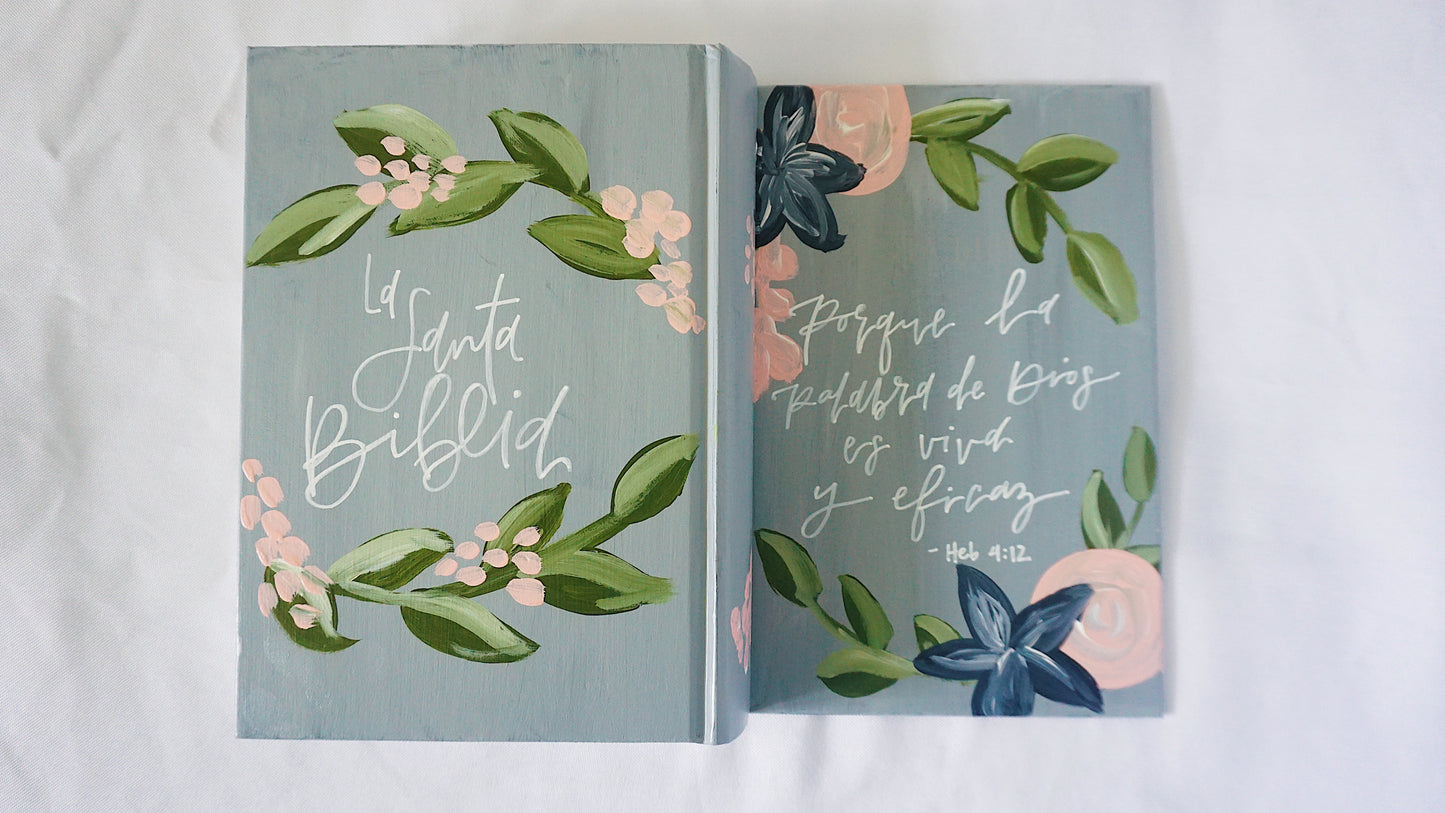 La
Santa
Biblia
Porque la
palabra de Dios
es viva
y eficaz
- Heb 4:12